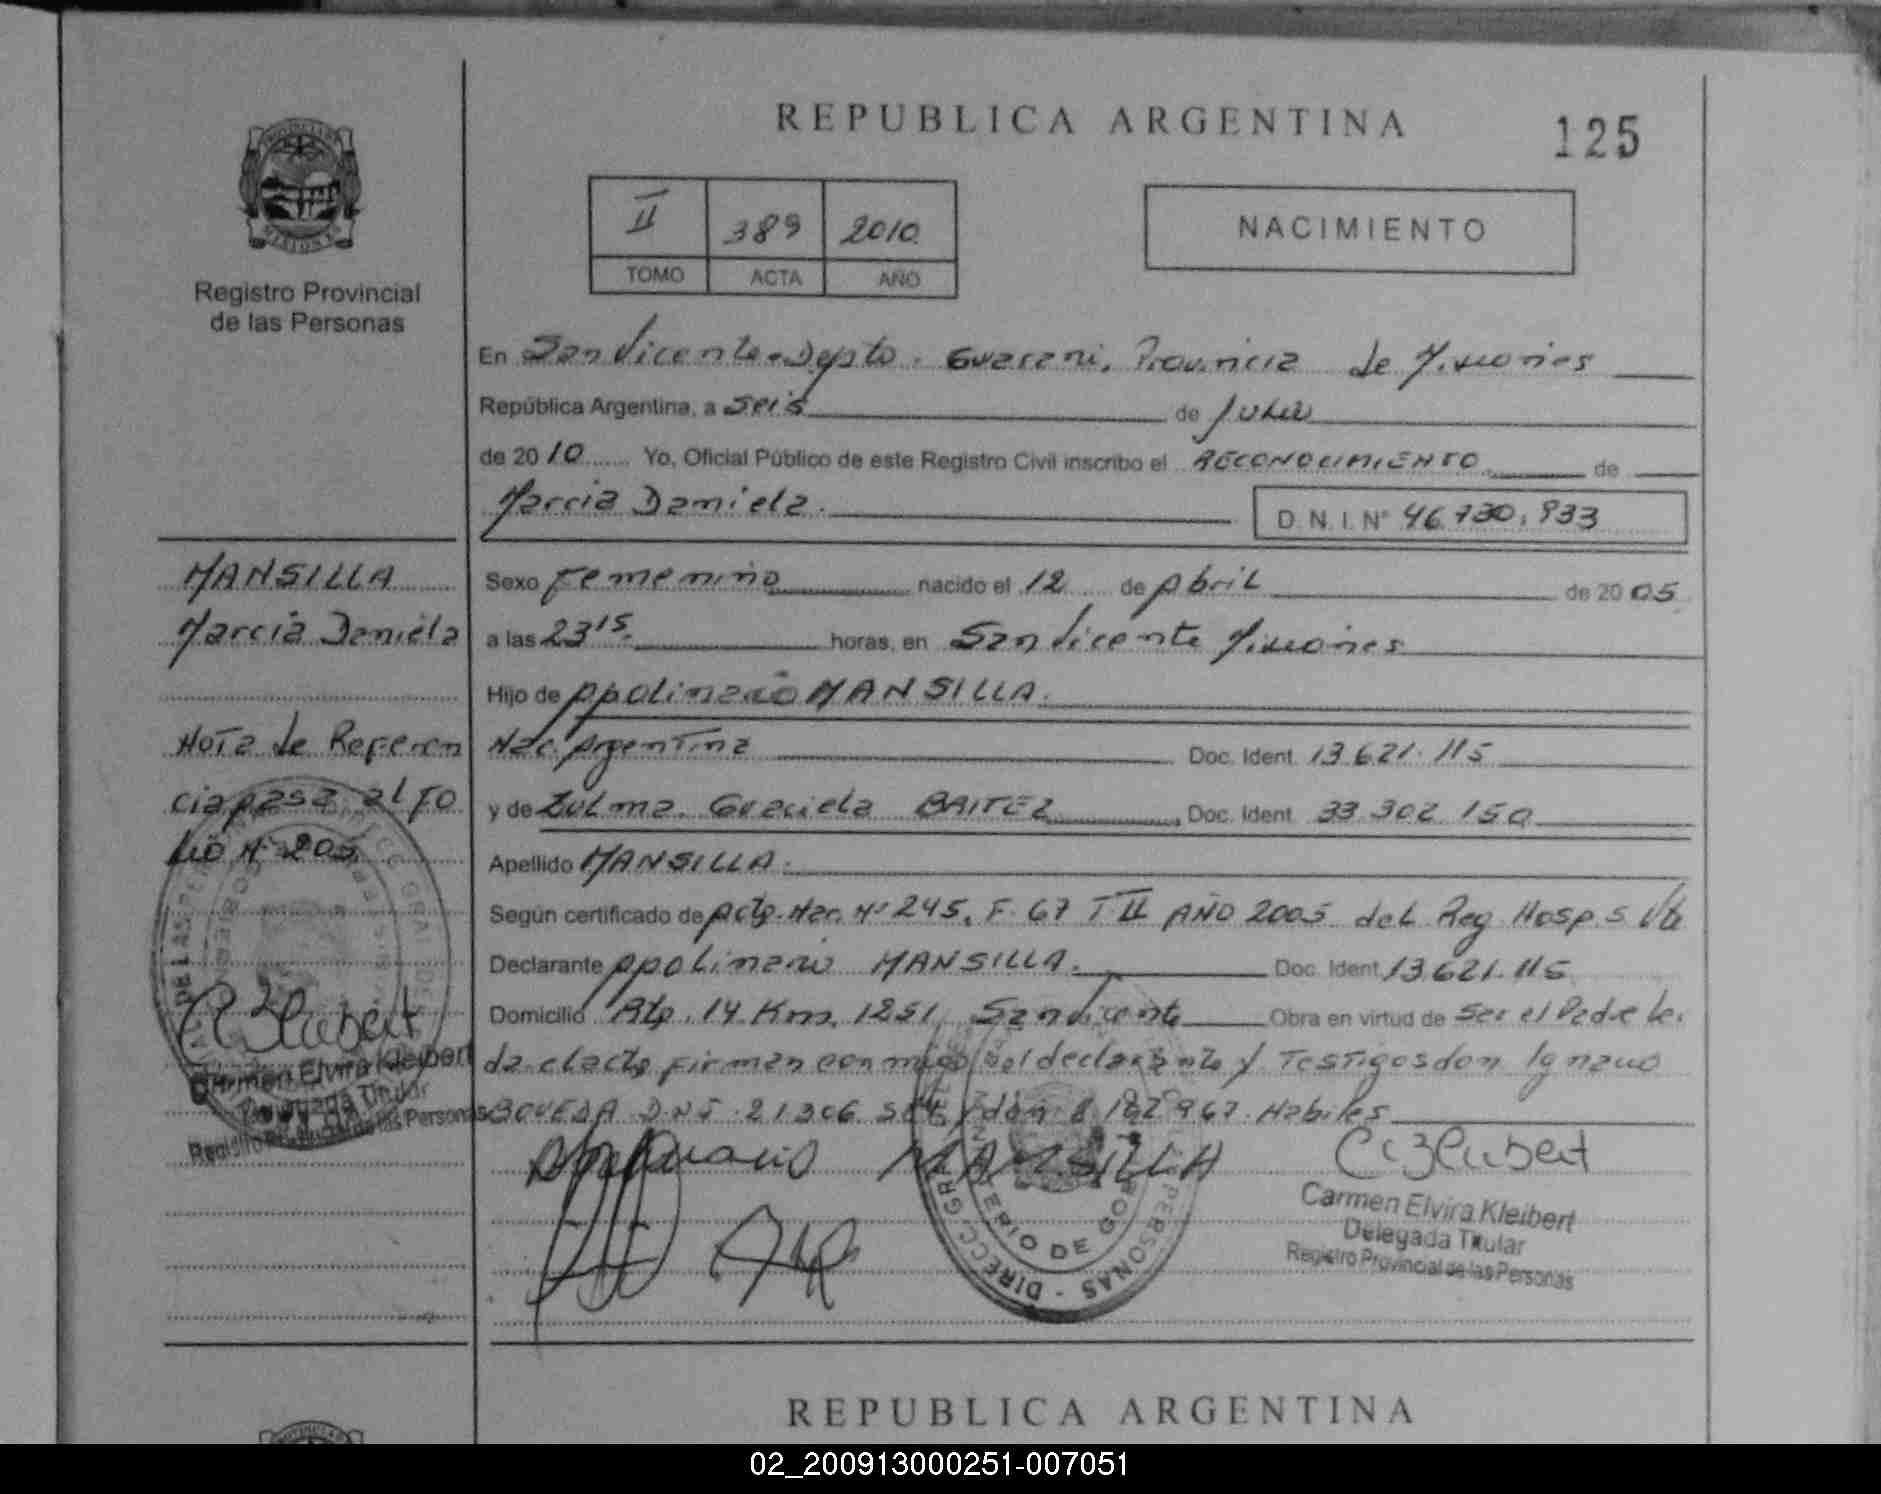 REPUBLICA ARGENTINA
125
II 389 2010
TOMO ACTA AÑO
NACIMIENTO
Registro Provincial
de las Personas
En San Vicente - Depto. Guarani, Provincia de Misiones
República Argentina, a Seis de Julio
de 2010 Yo, Oficial Público de este Registro Civil inscribo el RECONOCIMIENTO de
Marcia Daniela. D.N.I. N° 46.730.933
MANSILLA
Marcia Daniela
Nota de Referen
cia pasa al Fo
lio Nº 205
DE LAS PERSONAS
Carmen Elvira Kleibert
Delegada Titular
Registro Provincial de las Personas
Sexo Femenino nacido el 12 de Abril de 2005
a las 23 15. horas, en San Vicente Misiones
Hijo de Apolinario MANSILLA.
Nac. Argentina Doc. Ident. 13.621.115
y de Zulma Graciela BAITEZ Doc. Ident. 33.302.150
Apellido MANSILLA.
Según certificado de Acta. Nac. Nº 245. F. 67 T II AÑO 2005 del Reg Hosp. S. Vte
Declarante Apolinario MANSILLA. Doc. Ident. 13.621.115
Domicilio Rta. 14 Km. 1251 San Vicente Obra en virtud de Ser el Padre le
da el acta firman con migo el declarante y Testigos don Ignacio
BOVEDA D.N.I. 21.306 y don 8.182.967. Habiles
MANSILLA
DIRECC. GRAL. PERSONAS
MINISTERIO DE GOB
Carmen Elvira Kleibert
Delegada Titular
Registro Provincial de las Personas
REPUBLICA ARGENTINA
02_200913000251-007051